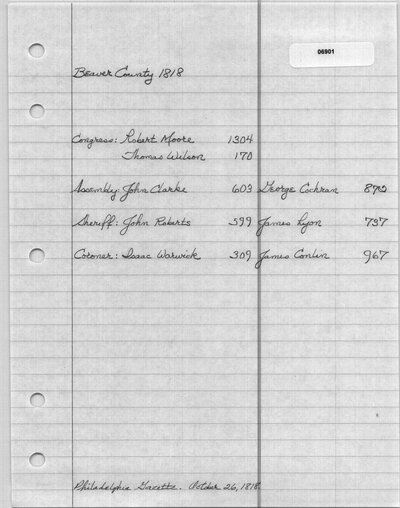 06901
Beaver County 1818
Congress: Robert Moore 1304
Thomas Wilson 170
Assembly: John Clarke 603 George Cochran 872
Sheriff: John Roberts 599 James Lyon 737
Coroner: Isaac Warwick 309 James Conlin 967
Philadelphia Gazette. October 26, 1818.